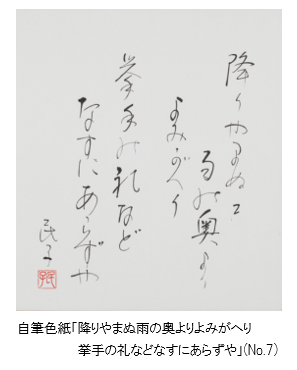 降りやまぬ
雨の奥より
よみがへり
挙手の礼など
なすにあらずや
民子
自筆色紙「降りやまぬ雨の奥よりよみがへり
挙手の礼などなすにあらずや」(No.7)